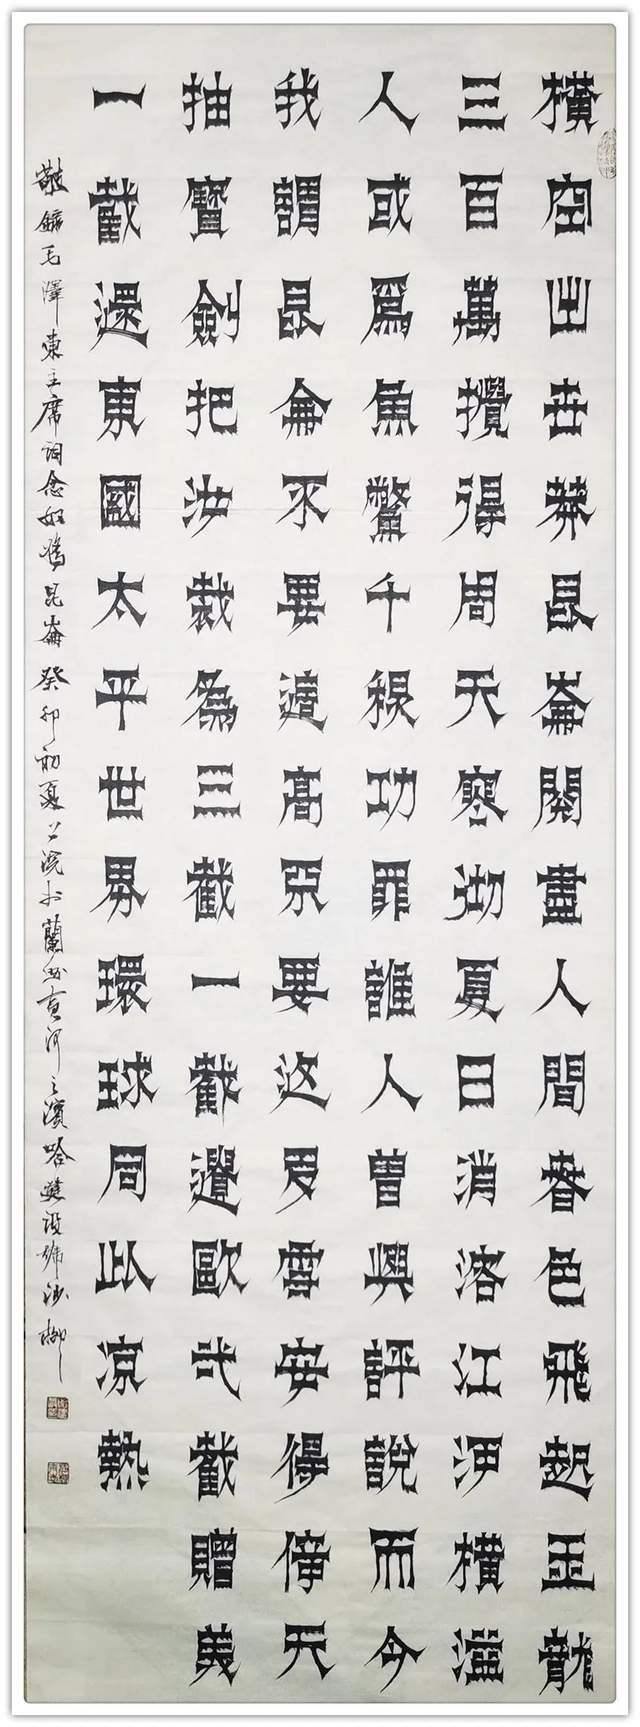 橫空出世莽昆崙閱盡人間春色飛起玉龍
三百萬攪得周天寒彻夏日消溶江河橫溢
人或爲魚鱉千秋功罪誰人曾興評說而今
我謂昆侖不要這高不要這多雪安得倚天
抽寶劍把汝裁為三截一截遺歐弌截贈美
一截還東國太平世界環球同此凉熱
敬錄毛澤東主席詞念奴嬌昆崙癸卯初夏於蘭州黃河之濱哈建設